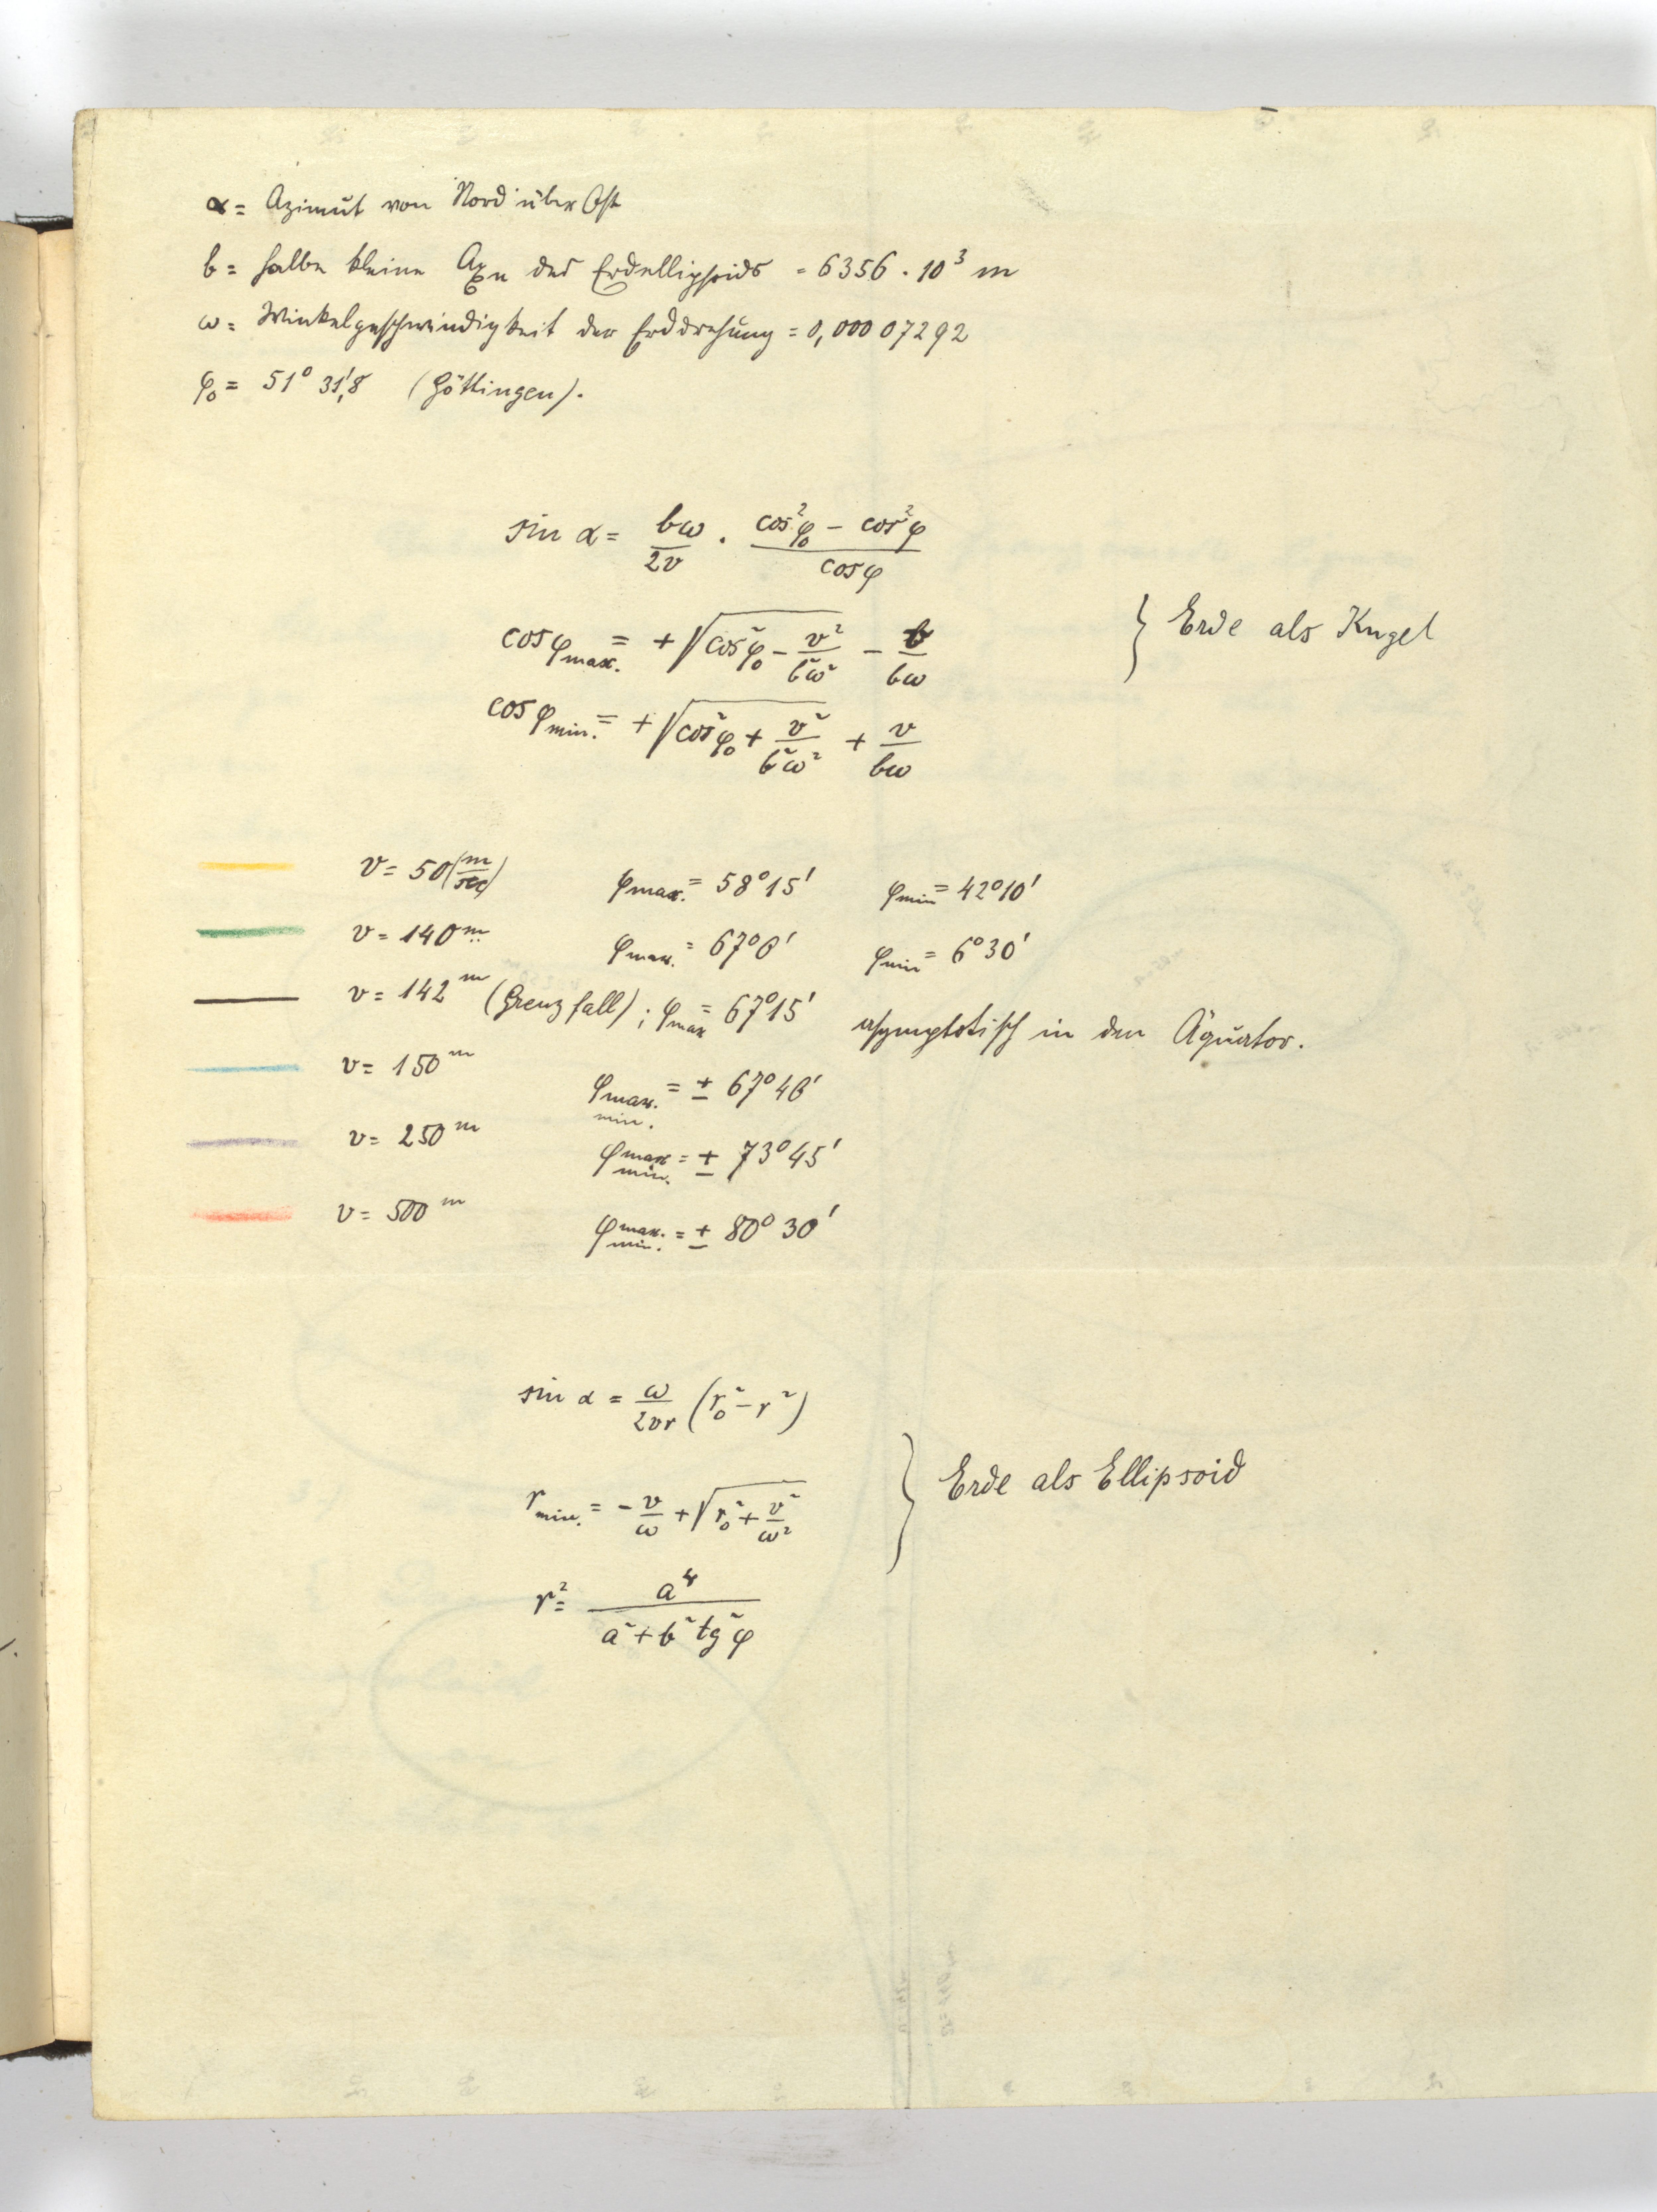 α = Azimut von Nord über Ost
b = halbe kleine Axe des Erdellipsoids = 6356 . 10³ m
ω = Winkelgeschwindigkeit der Erddrehung = 0,00007292
φ₀ = 51° 31',8 (Göttingen).
sin α = bω/2v . (cos²φ₀ − cos²φ)/cosφ
cosφmax. = +√(cos²φ₀ − v²/b²ω²) − v/bω
cosφmin. = +√(cos²φ₀ + v²/b²ω²) + v/bω
} Erde als Kugel
v = 50 (m/sec) φmax. = 58°15' φmin = 42°10'
v = 140 m φmax. = 67°0' φmin = 6°30'
v = 142 m (Grenzfall); φmax = 67°15' asymptotisch in den Äquator.
v = 150 m φmax. min. = ± 67°40'
v = 250 m φmax min. = ± 73°45'
v = 500 m φmax. min. = ± 80°30'
sin α = ω/2vr (r₀² − r²)
rmin. = − v/ω + √(r₀² + v²/ω²)
r² = a⁴/(a² + b² tg²φ)
} Erde als Ellipsoid